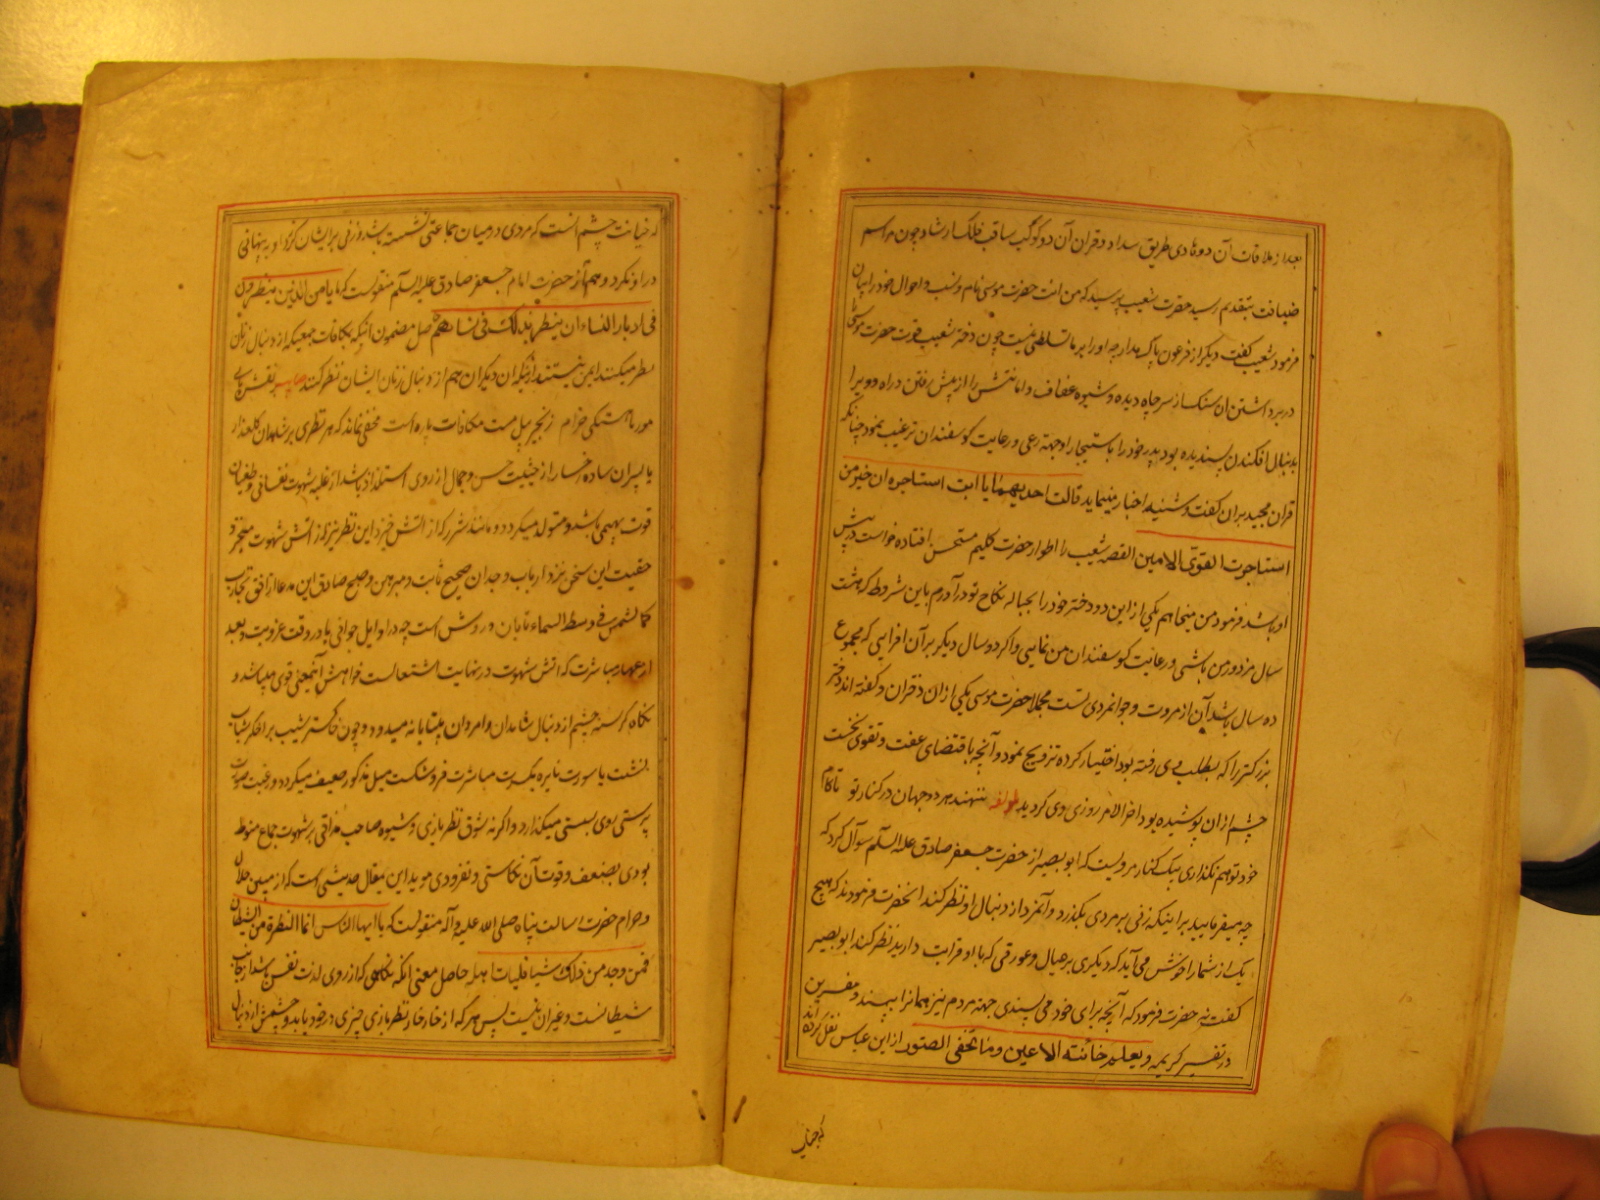 بعد از ملاقات آن دو هادی طریق سداد و قران آن دو کوکب ساقب فلک ارشاد چون مراسم
ضیافت بتقدیم رسید حضرت شعیب پرسید که من انت حضرت موسی نام و نسب و احوال خود را بیان
فرمود شعیب کفت دیکر از فرعون باک مدار چه او را بر ما تسلطی نیست چون دختر شعیب قوت حضرت موسی
در برداشتن ان سنک از سر چاه دیده و شیوه عفاف و امانتش را از پیش رفتن در راه و ویرا
بدنبال افکندن پسندیده بود پدر خود را باستیجار او جهة رعی و رعایت کوسفندان ترغیب نمود چنانکه
قران مجید بران کفت و شنید اخبار مینماید قالت احدیهما یا ابت استاجره ان خیر من
استاجرت القوی الامین القصه شعیب را اطوار حضرت کلیم مستحسن افتاده خواست در پیش
او باشد فرمود من میخواهم یکی از این دو دختر خود را بحباله نکاح تو در آورم باین شروط که هشت
سال مزدور من باشی و رعایت کوسفندان من نمایی و اکر دو سال دیکر بر آن افزایی که مجموع
ده سال باشد آن از مروت و جوانمردی تست مجملا حضرت موسی یکی از ان دختران و کفته اند دختر
بزرکتر را که بطلب وی رفته بود اختیار کرده تزویج نمود و آنچه باقتضای عفت و تقوی نخست
چشم از ان پوشیده بود اخر الامر روزی وی کردید لمولفه ننهند هر دو جهان در کنار تو تا کام
خود تو هم نکذاری بیک کنار مرویست که ابو بصیر از حضرت جعفر صادق علیه السلم سوآل کرد که
چه میفرمایید بر اینکه زنی بر مردی بکذرد و آنمرد از دنبال او نظر کند انحضرت فرمودند که هیچ
یک از شما را خوش می آید که دیکری بر عیال و عورتی که با او قرابت دارید نظر کند ابو بصیر
کفت نه حضرت فرمود که آنچه برای خود می پسندی جهة مردم نیز همانرا بپسند و مفسرین
در تفسیر کریمه و یعلم خائنة الاعین و ما تخفی الصدور از ابن عباس نقل کرده اند
که خیانت
که خیانت چشم انست که مردی در میان جماعتی نشسته باشد و زنی بر ایشان کذرد او به پنهانی
در او نکرد و هم از حضرت امام جعفر صادق علیه السلم منقولست که ما یامن الذین ینظرون
فی ادبار النساء ان ینظر بذلک فی نسایهم حاصل مضمون انیکه بمکافات جمعیکه از دنبال زنان
نظر میکنند ایمن نیستند از انیکه ان دیکران هم از دنبال زنان ایشان نظر کنند
مور ما اهستکی خرام زنجیر پیل مست مکافات پاره است مخفی نماند که هر نظری بر شاهدان کلعذار
یا پسران ساده رخسار از حیثیت حسن و جمال از روی استلذاذ باشد از غلبه شهوت نفسانی و طغیان
قوت بهیمی باشد و متولد میکردد و مانند شرر که از اتش خیزد این نظر نیز که از اتش شهوت
حقیت این سخن نزد ارباب وجدان صحیح ثابت و مبرهن و صبح صادق این مدعا از افق تجارب
کالشمس فی وسط السماء تابان و روشن است چه در اوایل جوانی یا در وقت عزوبت و بعد
از عهد مباشرت که اتش شهوت در نهایت اشتعالست خواهش آنمعنی قوی میباشد و
نکاه کرسنه چشم از دنبال شاهدان و امردان بیتابانه میدود و چون خاکستر شیب بر اخکر شباب
نشست یا سورت نایره بکثرت مباشرت فرو شکست میل مذکور ضعیف میکردد و رغبت صورت
پرستی روی بسستی میکذارد و اکر نه شوق نظر بازی و شیوه صاحب مذاقی بر شهوت جماع منوط
بودی بضعف و قوت آن نکاستی و نفزودی موید این مقال حدیثی است که از مبین حلال
و حرام حضرت رسالت پناه صلی الله علیه و آله منقولست که یا ایها الناس انما النظرة من الشیطان
فمن وجد من ذلک شیا فلیات اهله حاصل معنی انکه نکاهی که از روی لذت نفس باشد از جانب
شیطانست و غیر ان نیست پس هر که از خار خار نظر بازی چیزی در خود یابد و چشمش از دنبال